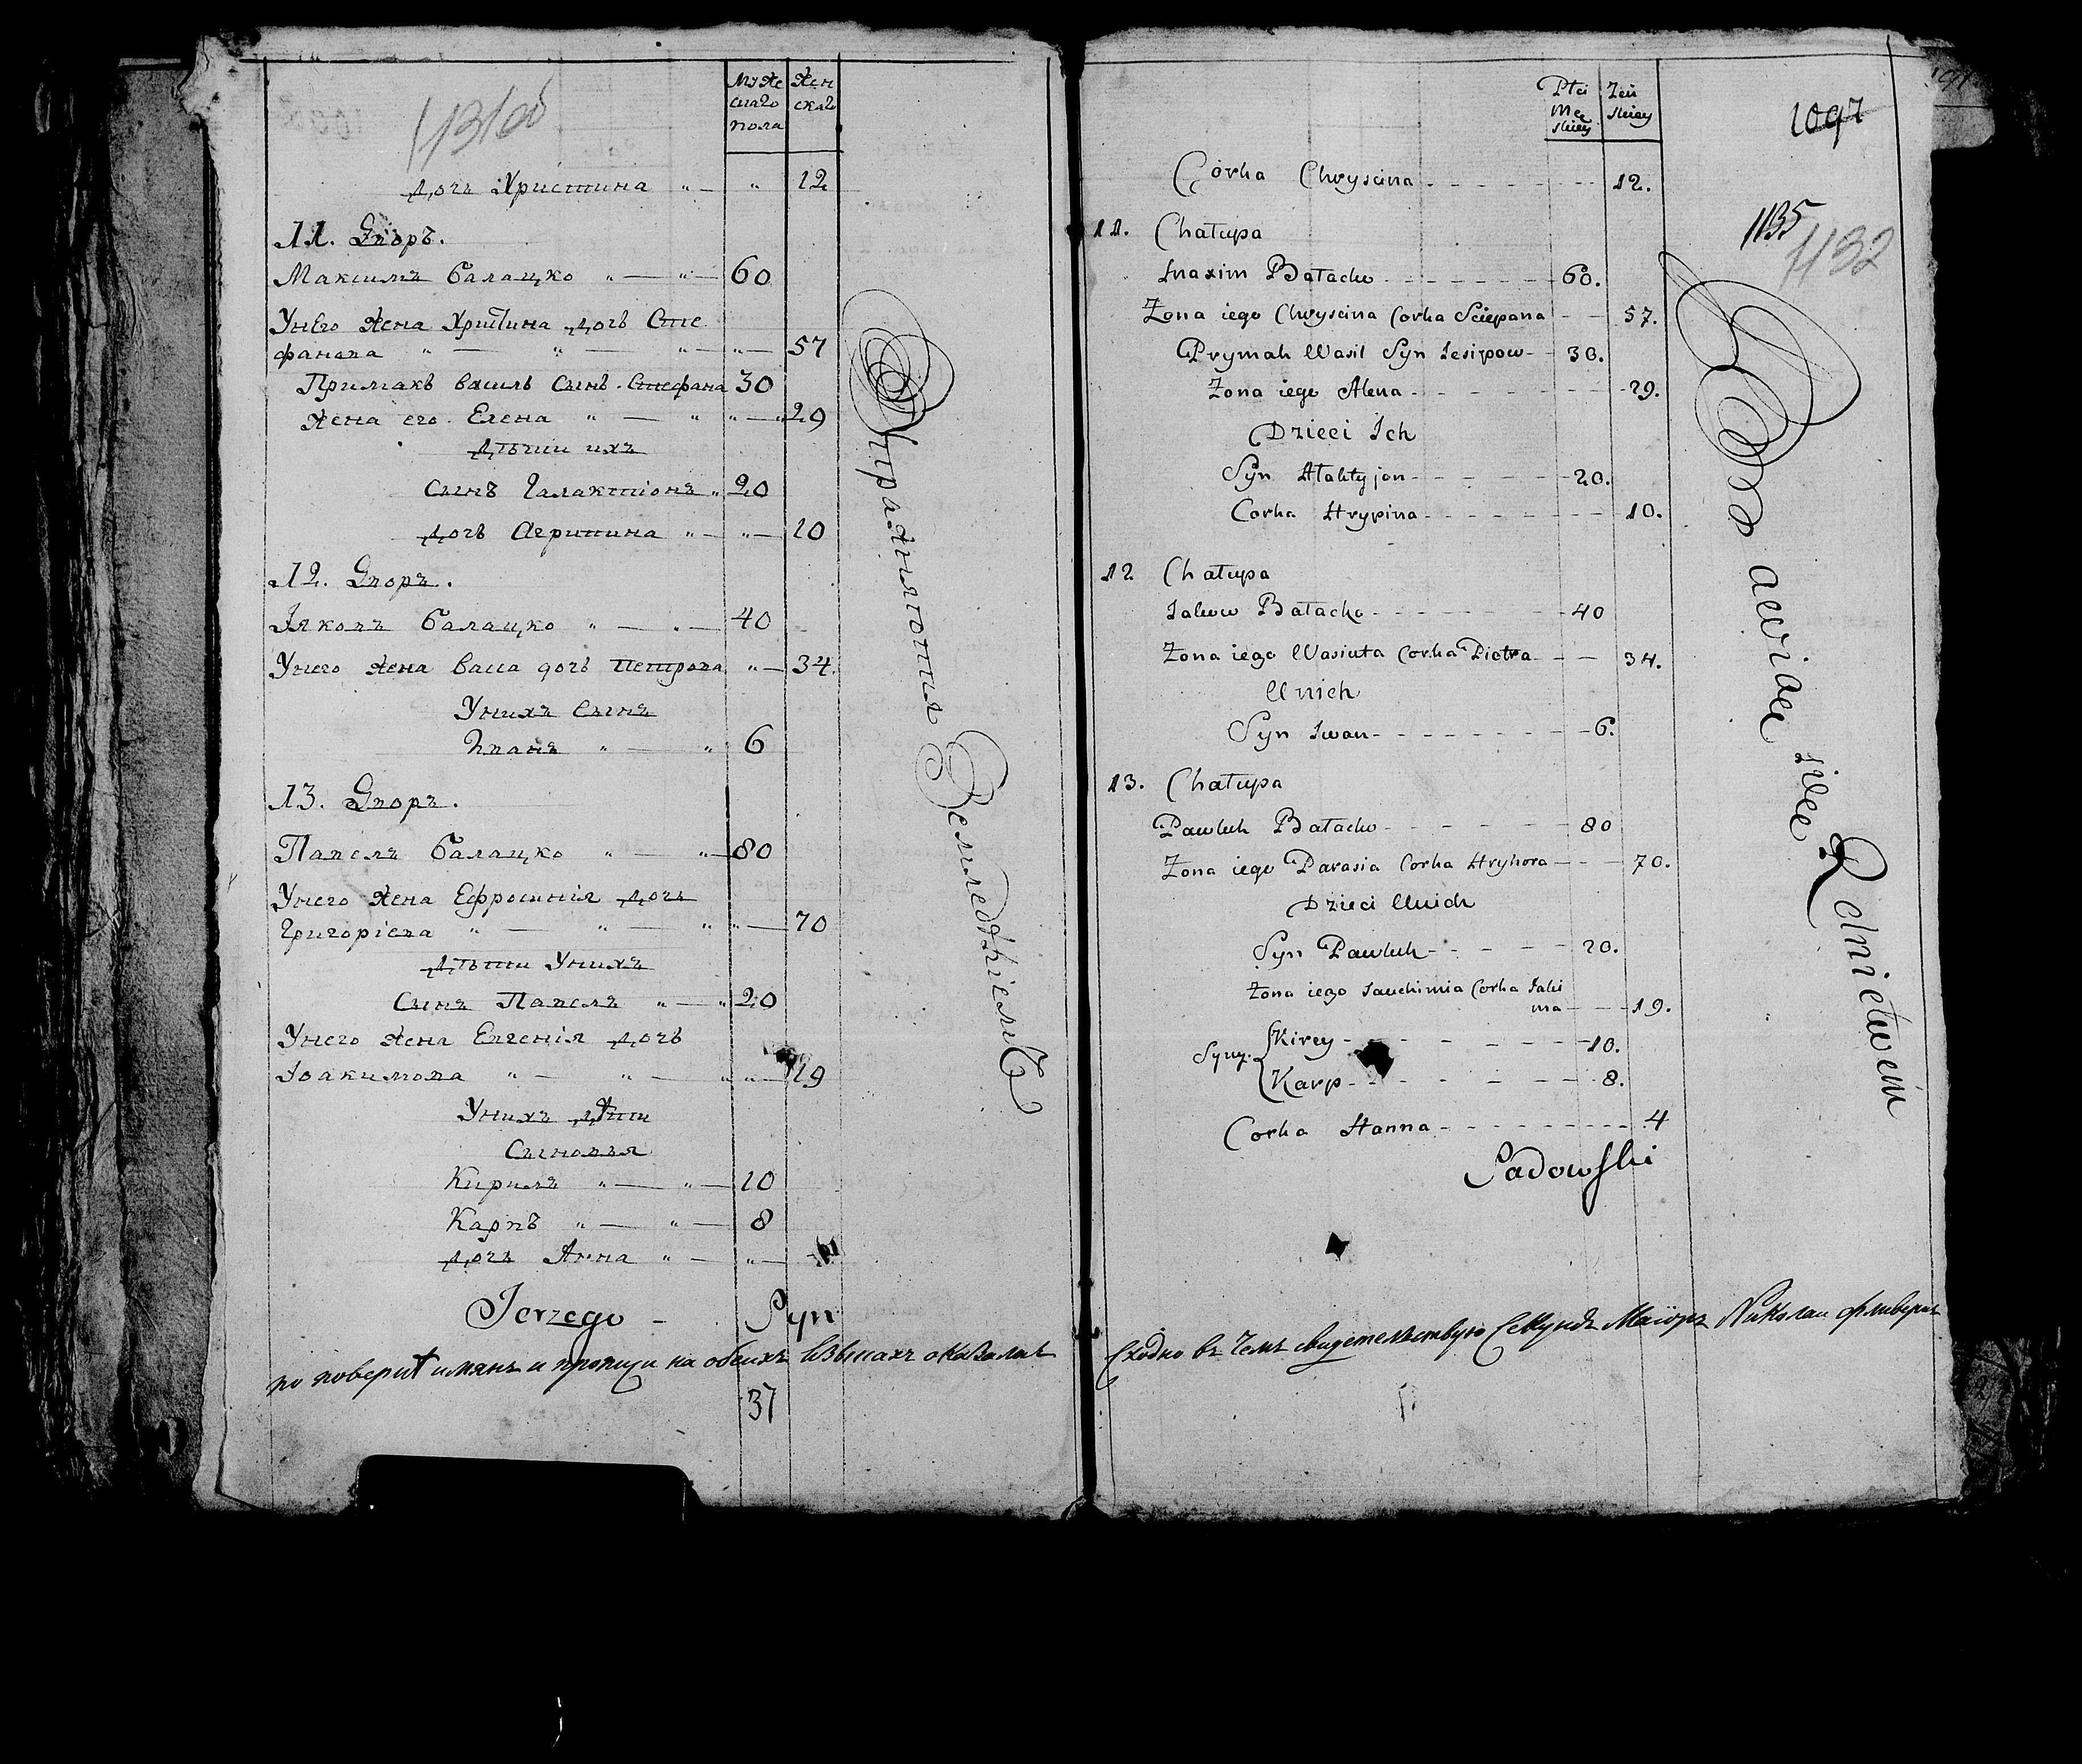 Мужескаго пола
Женскаго
дочь Христина 12
11. Дворъ.
Максимъ Балацко 60
Унего жена Христина дочь Сте
фанова 57
Примакъ василь Сынъ Стефана 30
жена его Елена 29
дѣти ихъ
Сынъ Галактіонъ 20
дочь Агрипина 10
12. Дворъ.
Іяковъ Балацко 40
Унего жена васса дочь Петрова 34.
Унихъ Сынъ
Иванъ 6
13. Дворъ.
Павелъ Балацко 80
Унего жена Ефросинія дочь
Григоріева 70
дѣти Унихъ
Сынъ Павелъ 20
Унего жена Евгенія дочь
Іоакимова 19
Унихъ дѣти
Сыновья
Кирилъ 10
Карпъ 8
дочь Анна
Упражняютця Земледѣліемъ
Jerzego - Syn
по поверке имянъ и прописи на обеихъ языкахъ оказалось
37
Płci Męskiey
Żeńskiey
1097
1135
1132
Corka Chryscina 12.
11. Chałupa
Maxim Bałacko 60.
Żona iego Chryscina Corka Sciepana 57.
Prymak Wasil Syn Jesipow 30.
Żona iego Alena 29.
Dzieci Ich
Syn Hałaktyjon 20.
Corka Hrypina 10.
12 Chałupa
Jakow Bałacko 40
Żona iego Wasiuta Corka Pietra 34.
U nich
Syn Iwan 6.
13. Chałupa
Pawluk Bałacko 80
Żona iego Parasia Corka Hryhora 70.
Dzieci Unich
Syn Pawluk 20.
Żona iego Jauchimia Corka Jaki
ma 19.
Syny Kirey 10.
Karp 8.
Corka Hanna 4
Sadowski
Bawiące siee Rolnictwem
Сходно въ чемъ свидетельствую Секундъ Маіоръ Николаи